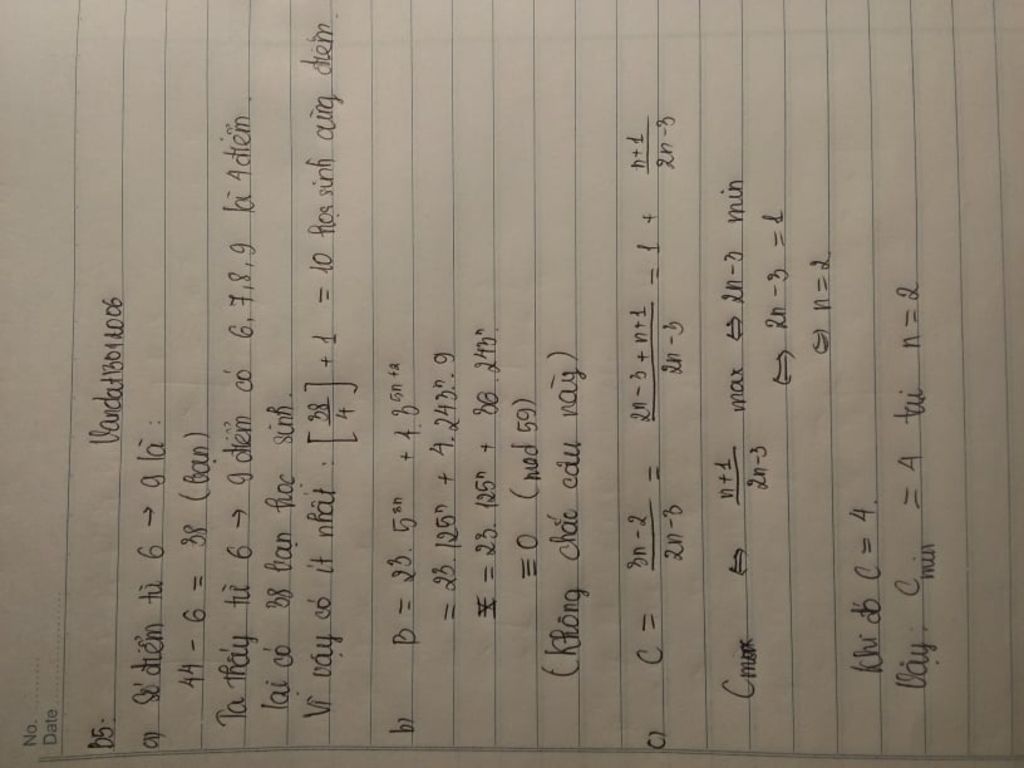 No.
Date
B5:
VandatB801.1006
a) Số điểm từ 6 → 9 là :
44 - 6 = 38 (bạn)
Ta thấy từ 6 → 9 điểm có 6,7,8,9 là 4 điểm.
lại có 38 bạn học sinh.
Vì vậy có ít nhất : [38/4] + 1 = 10 học sinh cùng điểm.
b) B = 23. 5³ⁿ + 4.3⁵ⁿ⁺²
= 23. 125ⁿ + 4.243ⁿ.9
= 23. 125ⁿ + 36.243ⁿ
≡ 0 (mod 59)
(Không chắc câu này)
c) C = (3n-2)/(2n-3) = (2n-3+n+1)/(2n-3) = 1 + (n+1)/(2n-3)
C max ⇔ (n+1)/(2n-3) max ⇔ 2n-3 min
⇔ 2n-3 = 1
⇔ n = 2
Khi đó C = 4.
Vậy: C min = 4 tại n = 2